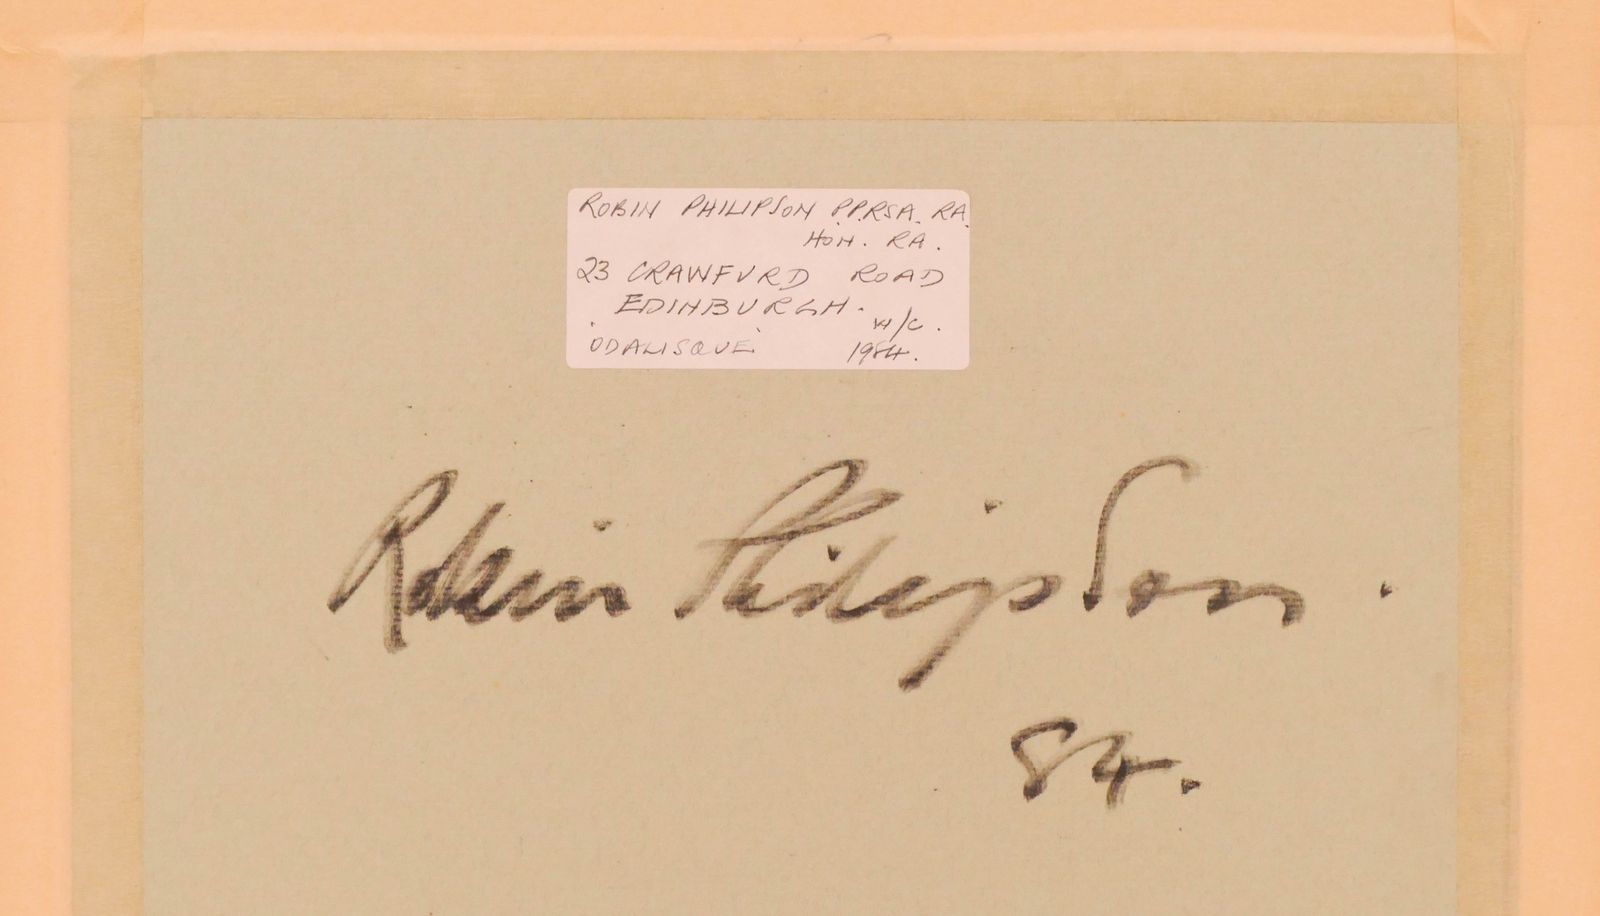 ROBIN PHILIPSON P.P.RSA. RA.
HON. RA.
23 CRAWFURD ROAD
EDINBURGH.
W/C.
'ODALISQUE' 1984.
Robin Philipson.
84.